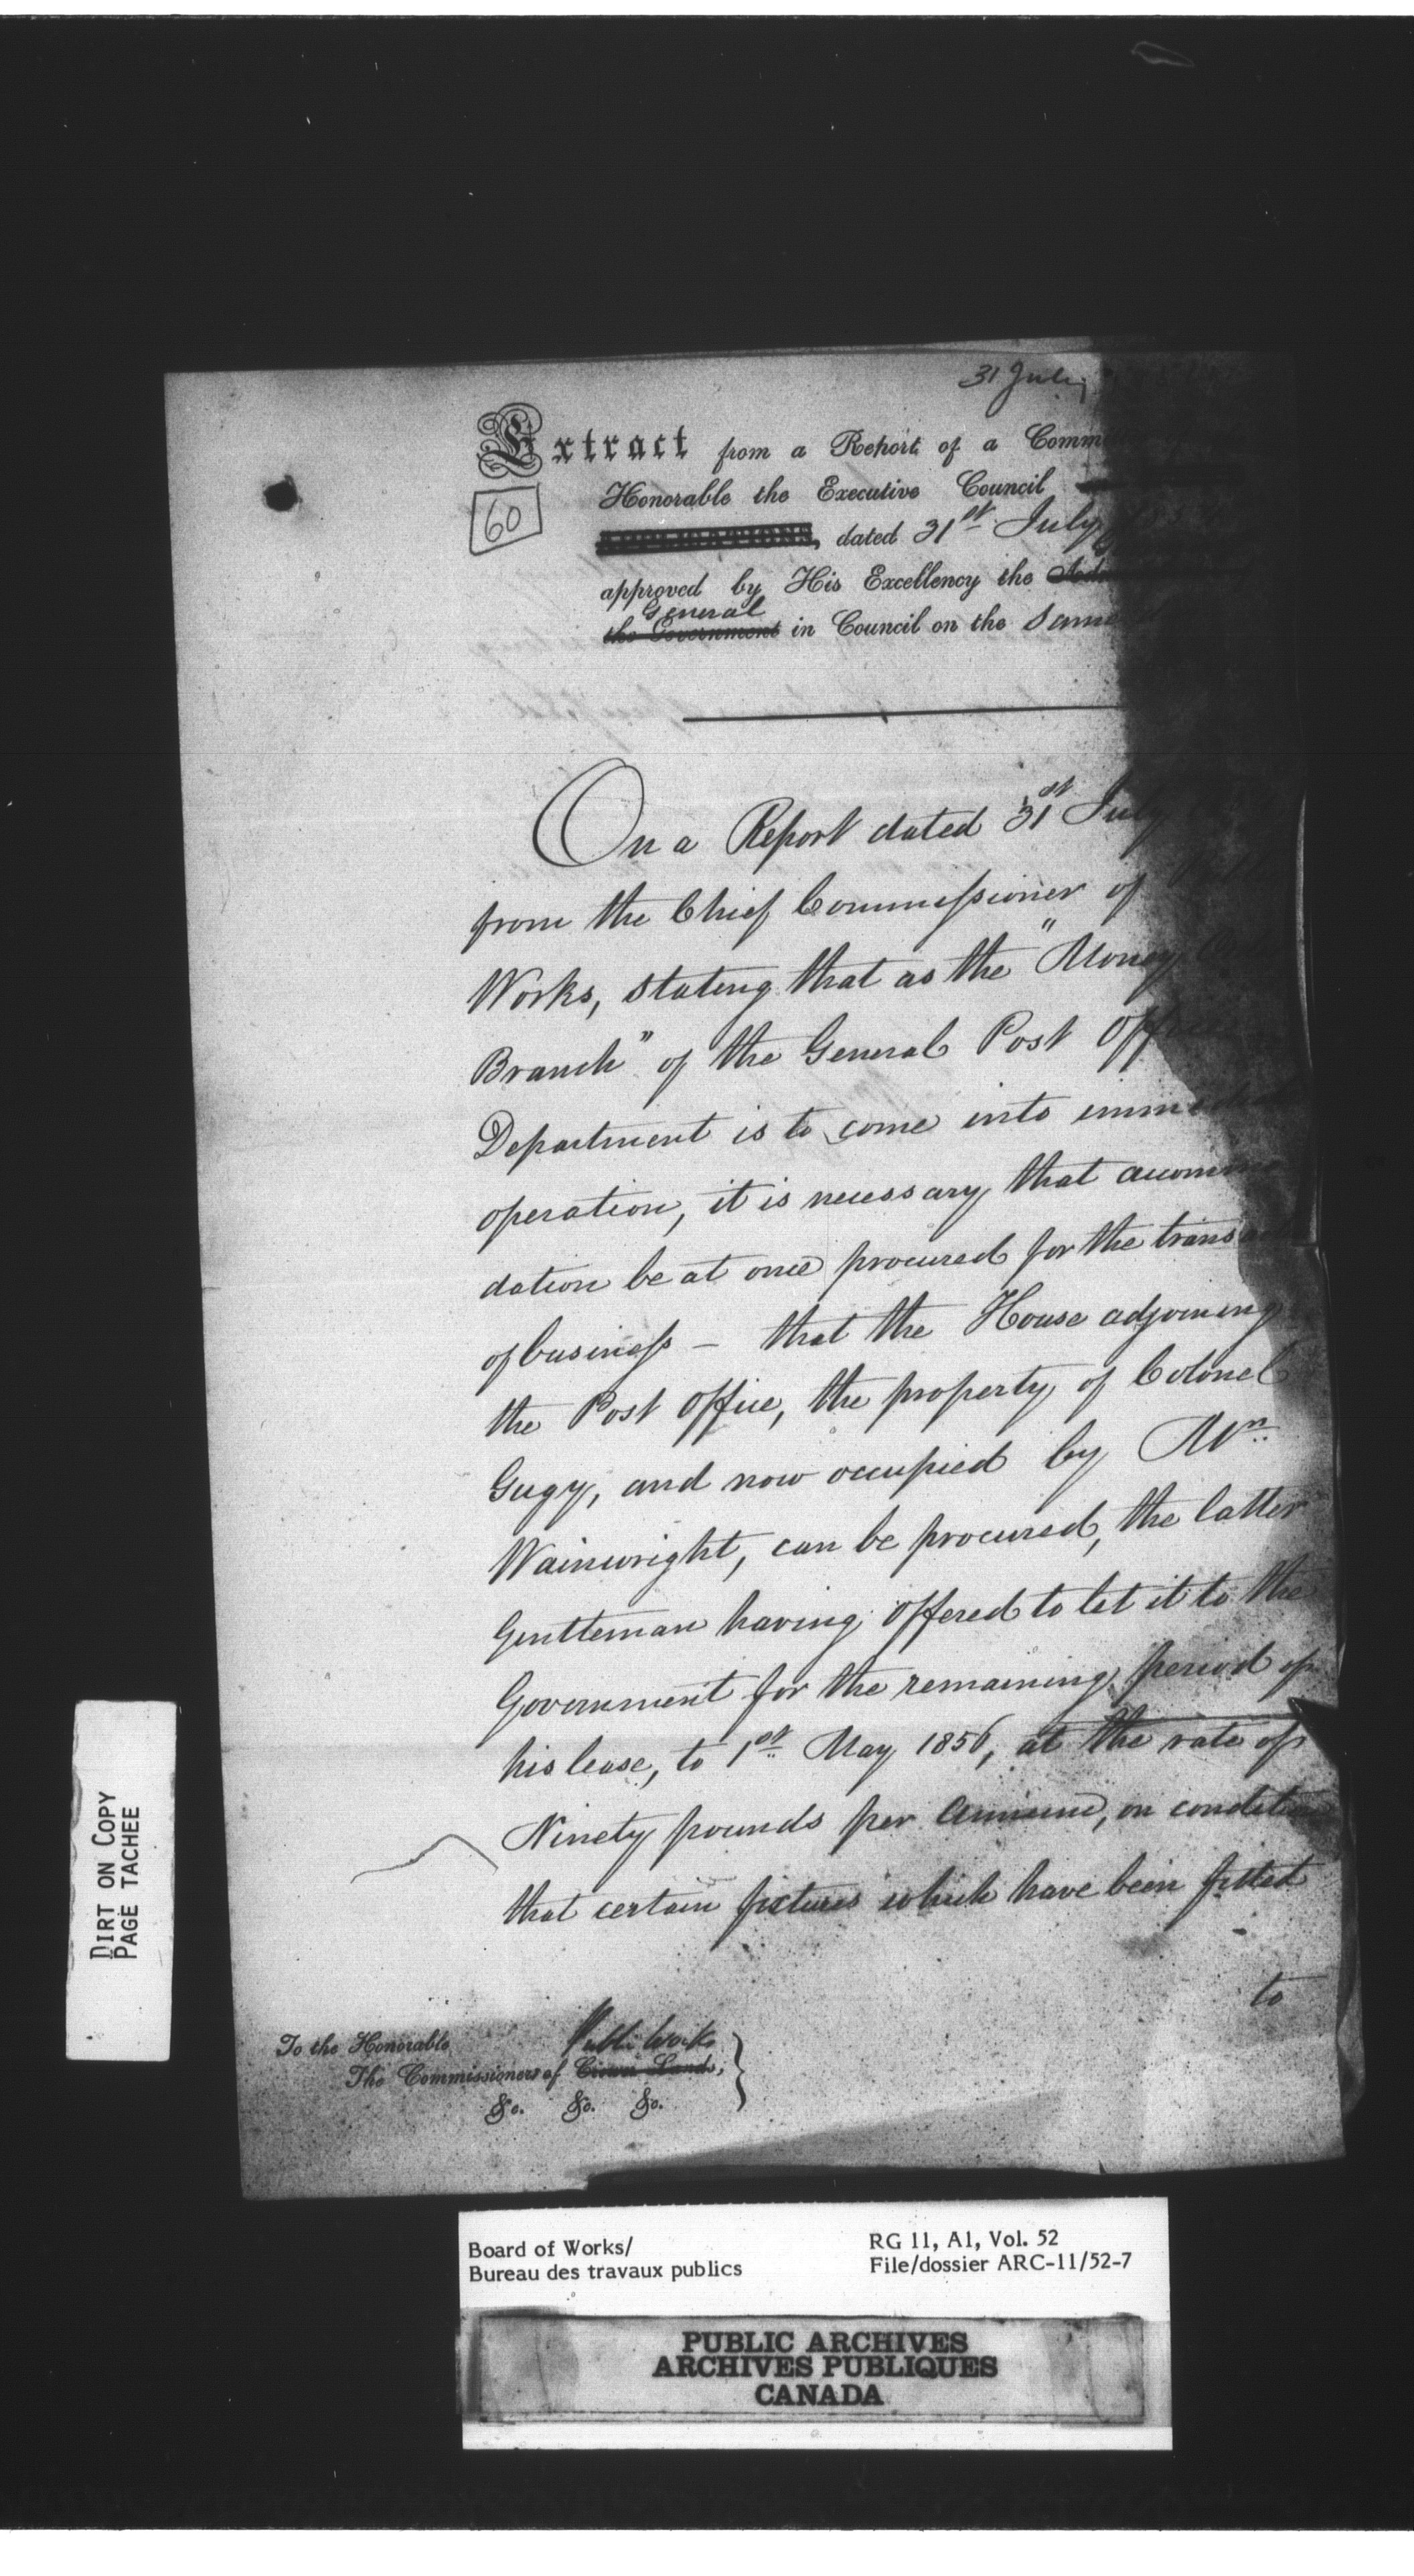 31 July
Extract from a Report of a
60
Honorable the Executive Council
dated 31st July
approved by His Excellency the
General
the Government in Council on the Same
On a Report dated 31st July
from the Chief Commissioner of
Works, stating that as the "Money
Branch" of the General Post Office
Department is to come into
operation, it is necessary that accommo
dation be at once procured for the
of business – that the House adjoining
the Post Office, the property of Colonel
Gugy, and now occupied by
Wainwright, can be procured, the latter
Gentleman having offered to let it to the
Government for the remaining period of
his lease, to 1st May 1856, at the rate of
Ninety pounds per Annum, on condition
that certain fixtures which have been fitted
to
To the Honorable
Public Works
The Commissioners of Crown Lands,
&c. &c. &c.
DIRT ON COPY
PAGE TACHEE
Board of Works/
Bureau des travaux publics
RG 11, A1, Vol. 52
File/dossier ARC-11/52-7
PUBLIC ARCHIVES
ARCHIVES PUBLIQUES
CANADA